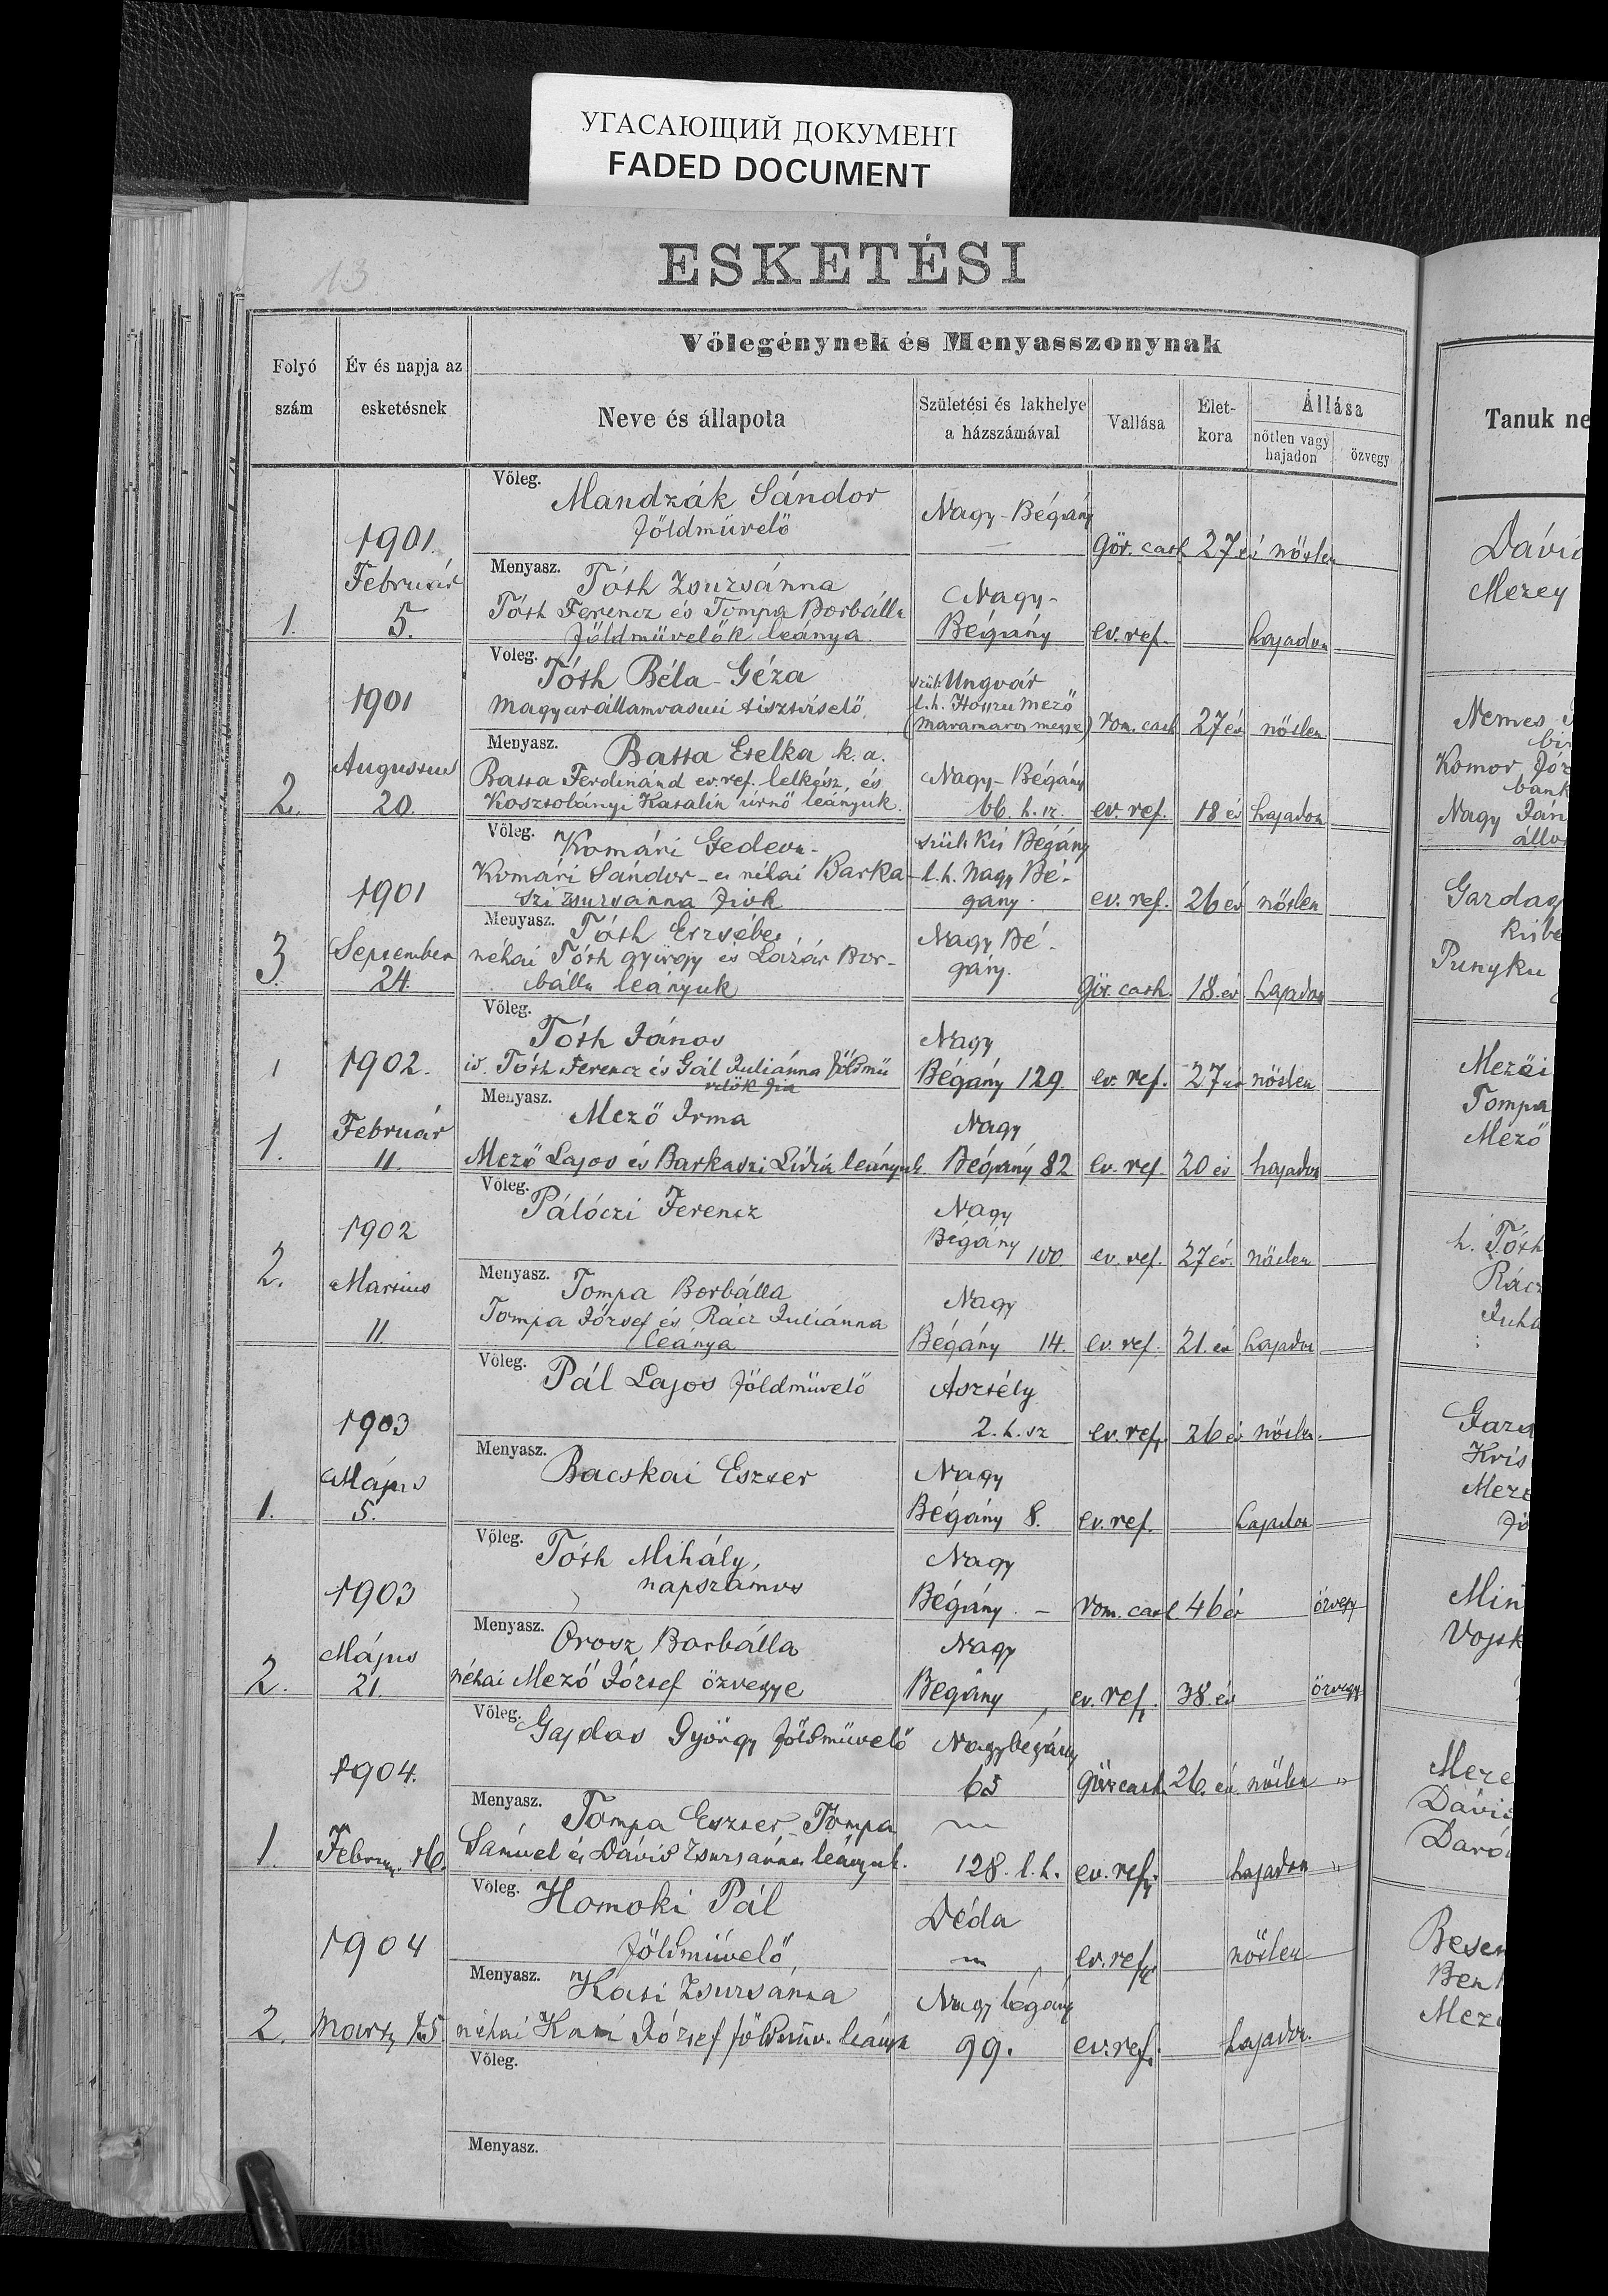 УГАСАЮЩИЙ ДОКУМЕНТ
FADED DOCUMENT
13
ESKETÉSI
Folyó szám
Év és napja az esketésnek
Vőlegénynek és Menyasszonynak
Neve és állapota
Születési és lakhelye a házszámával
Vallása
Élet-kora
Állása
nőtlen vagy hajadon
özvegy
Tanuk ne
1.
1901.
Február
5.
Vőleg.
Mandzák Sándor
földmüvelő
Nagy-Bégány
Gör. cath 27 év nőtlen
Menyasz.
Tóth Zsuzsánna
Tóth Ferencz és Tompa Borbálla
földmüvelők leánya
Nagy-
Bégány
ev. ref.
hajadon
Dávid
Mezey
2.
1901
Augustus
20.
Vőleg.
Tóth Béla-Géza
magyarállamvasuti tisztviselő
szül: Ungvár
l. h. Hosszu mező
(Maramaros megye)
rom. cath 27 év nőtlen
Menyasz.
Batta Etelka k. a.
Batta Ferdinánd ev. ref. lelkész, és
Kosztolányi Katalin úrnő leányuk.
Nagy-Bégány
66. h. sz.
ev. ref. 18 év hajadon
Nemes
Komor Józ
bank
Nagy Ján
3.
1901
September
24.
Vőleg.
Komári Gedeon-
Komári Sándor- és néhai Barka-
szi Zsuzsánna fiok
szül: Kis Bégány
l. h. Nagy Bé-
gány.
ev. ref. 26 év nőtlen
Menyasz.
Tóth Erzsébet
néhai Tóth györgy és Lázár Bor-
bálla leányuk
Nagy Bé-
gány.
Gör. cath. 18. év hajadon
Gardag
Punyku
1
1.
1902.
Február
11.
Vőleg.
Tóth János
id. Tóth Ferencz és Gál Juliánna földmü
velők fia
Nagy
Bégány 129.
ev. ref. 27 év nőtlen
Menyasz.
Mező Irma
Mező Lajos és Barkaszi Lidia leányuk
Nagy
Bégány 82
ev. ref. 20 év hajadon
Mezői
Tompa
Mező
2.
1902
Martius
11
Vőleg.
Pálóczi Ferencz
Nagy
Bégány 100
ev. ref. 27 év. nőtlen
Menyasz.
Tompa Borbálla
Tompa József és Rácz Juliánna
leánya
Nagy
Bégány 14.
ev. ref. 21. év hajadon
h. Tóth
Rácz
Juha
1.
1903
Május
5.
Vőleg.
Pál Lajos földmüvelő
Asztély
2. h. sz
ev. ref. 26 év nőtlen.
Menyasz.
Bacskai Eszter
Nagy
Bégány 8.
ev. ref.
hajadon
Kris
Meze
2.
1903
Május
21.
Vőleg.
Tóth Mihály,
napszámos
Nagy
Bégány. -
rom. cath 46 év
özvegy
Menyasz.
Orosz Borbálla
néhai Mező József özvegye
Nagy
Bégány
ev. ref. 38. év
özvegy
Min
1.
1904.
Februar. 16.
Vőleg.
Gajdos György földmüvelő
Nagybégány
65
Görcath. 26. év. nőtlen "
Menyasz.
Tompa Eszter-Tompa
Sámuel és Dávid Zsuzsánna leányuk.
128. l. h.
ev. ref.
hajadon "
Meze
Dávid
Daró
2.
1904
Martz 15
Vőleg.
Homoki Pál
földmüvelő,
Déda
ev. ref.
nőtlen
Menyasz.
ifj
Kati Zsuzsánna
néhai Kati József földmüv. leánya
Nagy bégány
99.
ev. ref.
hajadon.
Besen
Ben
Mező
Vőleg.
Menyasz.